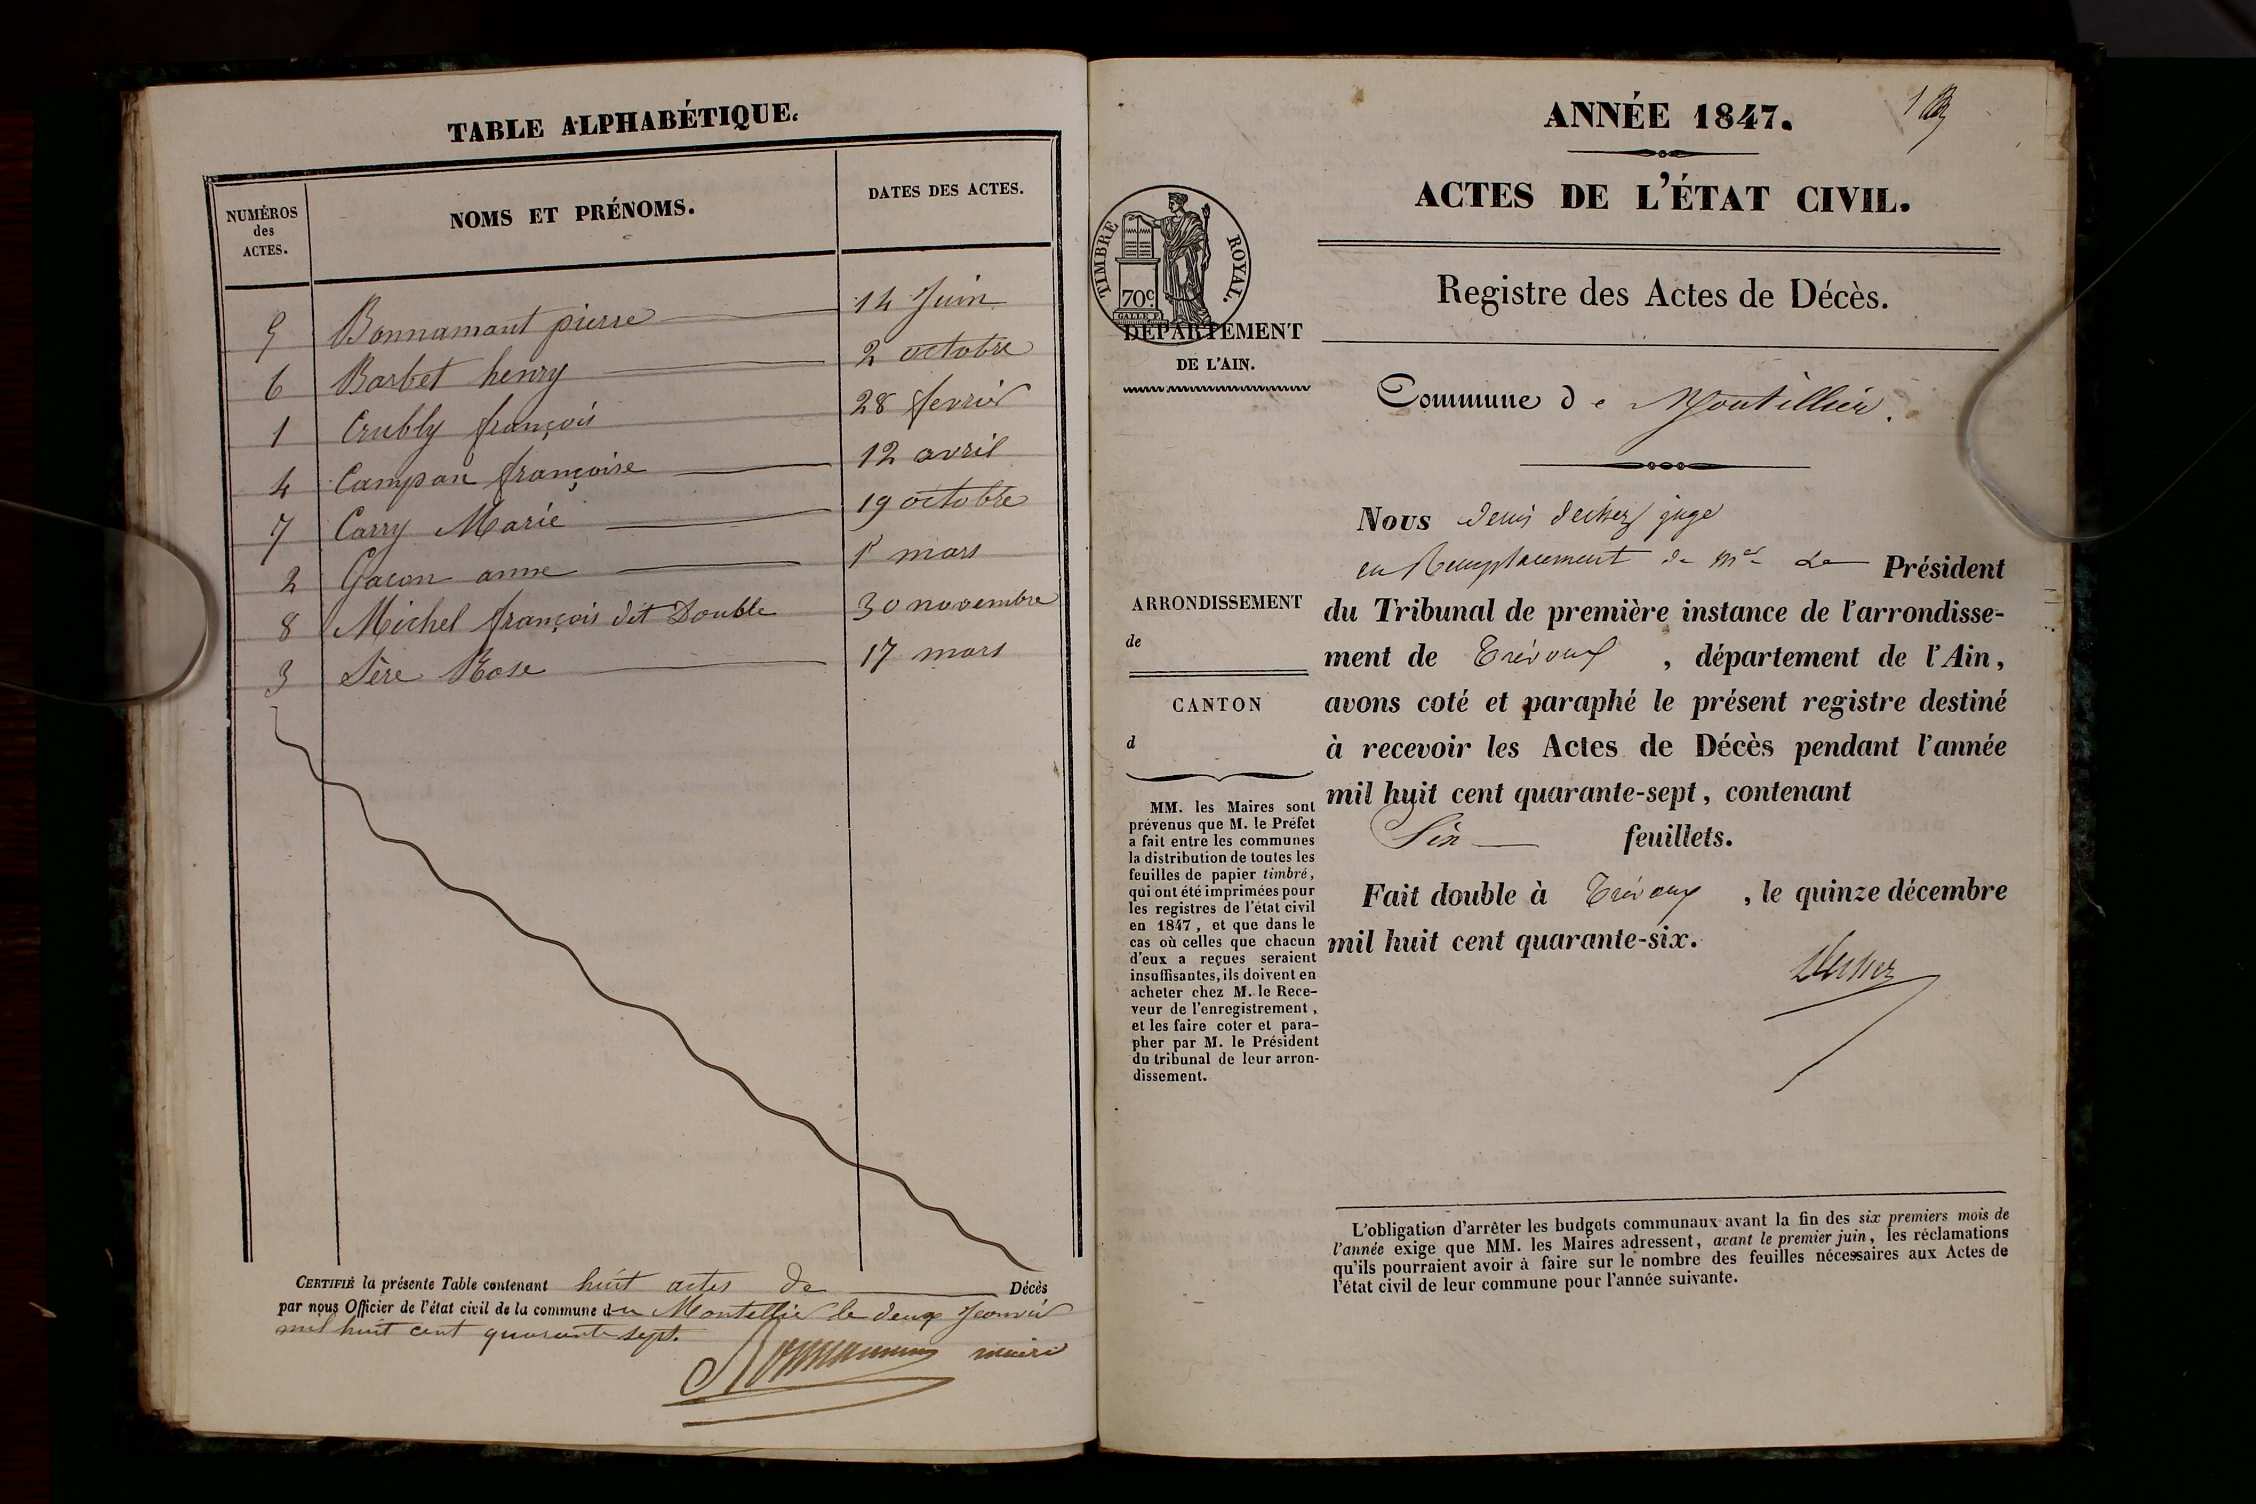 TABLE ALPHABÉTIQUE.
NUMÉROS des ACTES.
NOMS ET PRÉNOMS.
DATES DES ACTES.
5 Bonnamant pierre 14 Juin
6 Barbet henry 2 octobre
1 Crubly françois 28 fevrier
4 Campan françoise 12 avril
7 Carry Marie 19 octobre
2 Gacon anne 1r mars
8 Michel françois dit Double 30 novembre
3 Sère Rose 17 mars
CERTIFIÉ la présente Table contenant huit actes de Décès
par nous Officier de l'état civil de la commune du Montellier le deux Janvier
mil huit cent quarante sept.
maire
1
ANNÉE 1847.
ACTES DE L'ÉTAT CIVIL.
TIMBRE ROYAL.
70c.
DÉPARTEMENT
DE L'AIN.
Registre des Actes de Décès.
Commune de Montillier.
Nous denis
juge
en Remplacement de Mr Le Président
du Tribunal de première instance de l'arrondisse-
ment de Trévoux, département de l'Ain,
avons coté et paraphé le présent registre destiné
à recevoir les Actes de Décès pendant l'année
mil huit cent quarante-sept, contenant
Six feuillets.
Fait double à Trévoux, le quinze décembre
mil huit cent quarante-six.
ARRONDISSEMENT
de
CANTON
d
MM. les Maires sont
prévenus que M. le Préfet
a fait entre les communes
la distribution de toutes les
feuilles de papier timbré,
qui ont été imprimées pour
les registres de l'état civil
en 1847, et que dans le
cas où celles que chacun
d'eux a reçues seraient
insuffisantes, ils doivent en
acheter chez M. le Rece-
veur de l'enregistrement,
et les faire coter et para-
pher par M. le Président
du tribunal de leur arron-
dissement.
L'obligation d'arrêter les budgets communaux avant la fin des six premiers mois de
l'année exige que MM. les Maires adressent, avant le premier juin, les réclamations
qu'ils pourraient avoir à faire sur le nombre des feuilles nécessaires aux Actes de
l'état civil de leur commune pour l'année suivante.